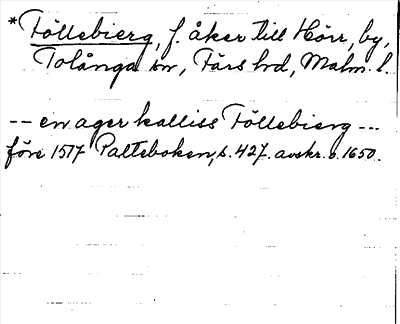 *Föllebierg, f. åker till Hörr, by,
Tolånga sn, Färs hd, Malm. l.
-- en ager kalliss Föllebierg ---
före 1517 Palteboken, s. 427. avskr. o. 1650.